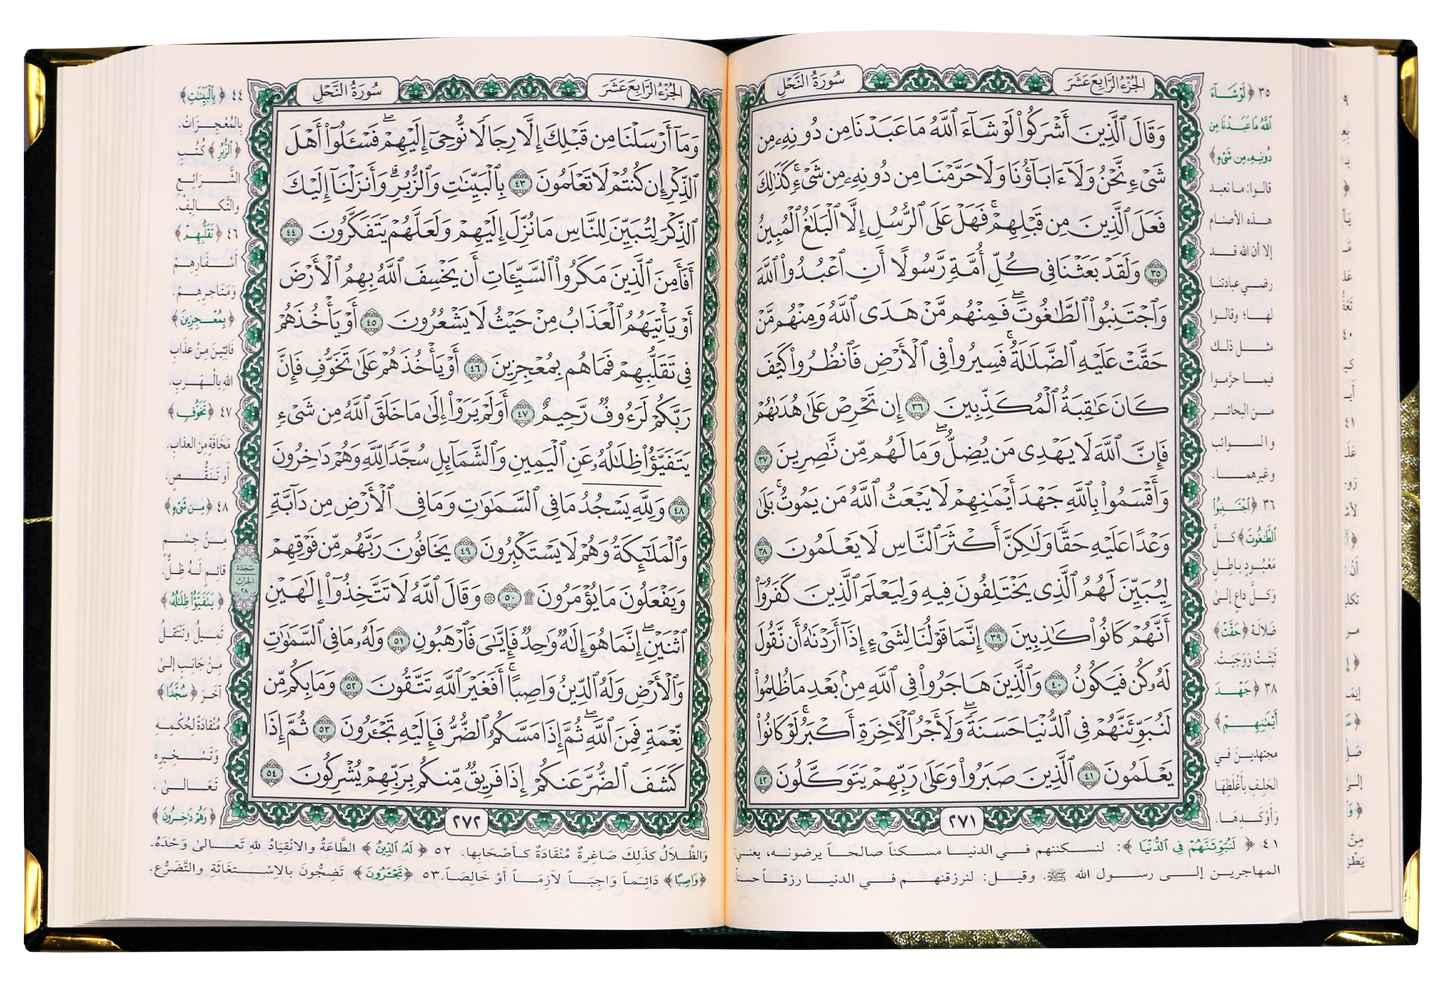 سُورَةُ النَّحْلِ
الجُزْءُ الرَّابِعَ عَشَرَ
وَقَالَ ٱلَّذِينَ أَشْرَكُوا۟ لَوْ شَآءَ ٱللَّهُ مَا عَبَدْنَا مِن دُونِهِۦ مِن
شَىْءٍ نَّحْنُ وَلَآ ءَابَآؤُنَا وَلَا حَرَّمْنَا مِن دُونِهِۦ مِن شَىْءٍ ۚ كَذَٰلِكَ
فَعَلَ ٱلَّذِينَ مِن قَبْلِهِمْ ۚ فَهَلْ عَلَى ٱلرُّسُلِ إِلَّا ٱلْبَلَٰغُ ٱلْمُبِينُ
٣٥ وَلَقَدْ بَعَثْنَا فِى كُلِّ أُمَّةٍ رَّسُولًا أَنِ ٱعْبُدُوا۟ ٱللَّهَ
وَٱجْتَنِبُوا۟ ٱلطَّٰغُوتَ ۖ فَمِنْهُم مَّنْ هَدَى ٱللَّهُ وَمِنْهُم مَّنْ
حَقَّتْ عَلَيْهِ ٱلضَّلَٰلَةُ ۚ فَسِيرُوا۟ فِى ٱلْأَرْضِ فَٱنظُرُوا۟ كَيْفَ
كَانَ عَٰقِبَةُ ٱلْمُكَذِّبِينَ ٣٦ إِن تَحْرِصْ عَلَىٰ هُدَىٰهُمْ
فَإِنَّ ٱللَّهَ لَا يَهْدِى مَن يُضِلُّ ۖ وَمَا لَهُم مِّن نَّٰصِرِينَ ٣٧
وَأَقْسَمُوا۟ بِٱللَّهِ جَهْدَ أَيْمَٰنِهِمْ ۙ لَا يَبْعَثُ ٱللَّهُ مَن يَمُوتُ ۚ بَلَىٰ
وَعْدًا عَلَيْهِ حَقًّا وَلَٰكِنَّ أَكْثَرَ ٱلنَّاسِ لَا يَعْلَمُونَ ٣٨
لِيُبَيِّنَ لَهُمُ ٱلَّذِى يَخْتَلِفُونَ فِيهِ وَلِيَعْلَمَ ٱلَّذِينَ كَفَرُوٓا۟
أَنَّهُمْ كَانُوا۟ كَٰذِبِينَ ٣٩ إِنَّمَا قَوْلُنَا لِشَىْءٍ إِذَآ أَرَدْنَٰهُ أَن نَّقُولَ
لَهُۥ كُن فَيَكُونُ ٤٠ وَٱلَّذِينَ هَاجَرُوا۟ فِى ٱللَّهِ مِنۢ بَعْدِ مَا ظُلِمُوا۟
لَنُبَوِّئَنَّهُمْ فِى ٱلدُّنْيَا حَسَنَةً ۖ وَلَأَجْرُ ٱلْءَاخِرَةِ أَكْبَرُ ۚ لَوْ كَانُوا۟
يَعْلَمُونَ ٤١ ٱلَّذِينَ صَبَرُوا۟ وَعَلَىٰ رَبِّهِمْ يَتَوَكَّلُونَ ٤٢
٢٧١
٣٥ ﴿لَوْ شَآءَ
ٱللَّهُ مَا عَبَدْنَا مِن
دُونِهِۦ مِن شَىْءٍ﴾
قالوا: ما نعبد
هذه الأصنام
إلا أن الله قد
رضي عبادتنا
لها؛ وقالوا
مثل ذلك
فيما حرّموا
من البحائر
والسوائب
وغيرهما.
٣٦ ﴿ٱجْتَنِبُوا۟
ٱلطَّٰغُوتَ﴾ كلَّ
مَعْبُودٍ باطلٍ
وكلَّ داعٍ إلى
ضلالة ﴿حَقَّتْ﴾
ثَبَتَتْ وَوَجَبَتْ.
٣٨ ﴿جَهْدَ
أَيْمَٰنِهِمْ﴾
مجتهدين في
الحَلِفِ بأَغْلَظِهَا
وَأَوْكَدِهَا.
٤١ ﴿لَنُبَوِّئَنَّهُمْ فِى ٱلدُّنْيَا﴾: لنسكننهم في الدنيا مسكناً صالحاً يرضونه، يعني
المهاجرين إلى رسول الله ﷺ. وقيل: لنرزقنهم في الدنيا رزقاً حسناً
سُورَةُ النَّحْلِ
الجُزْءُ الرَّابِعَ عَشَرَ
وَمَآ أَرْسَلْنَا مِن قَبْلِكَ إِلَّا رِجَالًا نُّوحِىٓ إِلَيْهِمْ ۖ فَسْـَٔلُوٓا۟ أَهْلَ
ٱلذِّكْرِ إِن كُنتُمْ لَا تَعْلَمُونَ ٤٣ بِٱلْبَيِّنَٰتِ وَٱلزُّبُرِ ۗ وَأَنزَلْنَآ إِلَيْكَ
ٱلذِّكْرَ لِتُبَيِّنَ لِلنَّاسِ مَا نُزِّلَ إِلَيْهِمْ وَلَعَلَّهُمْ يَتَفَكَّرُونَ ٤٤
أَفَأَمِنَ ٱلَّذِينَ مَكَرُوا۟ ٱلسَّيِّـَٔاتِ أَن يَخْسِفَ ٱللَّهُ بِهِمُ ٱلْأَرْضَ
أَوْ يَأْتِيَهُمُ ٱلْعَذَابُ مِنْ حَيْثُ لَا يَشْعُرُونَ ٤٥ أَوْ يَأْخُذَهُمْ
فِى تَقَلُّبِهِمْ فَمَا هُم بِمُعْجِزِينَ ٤٦ أَوْ يَأْخُذَهُمْ عَلَىٰ تَخَوُّفٍ فَإِنَّ
رَبَّكُمْ لَرَءُوفٌ رَّحِيمٌ ٤٧ أَوَلَمْ يَرَوْا۟ إِلَىٰ مَا خَلَقَ ٱللَّهُ مِن شَىْءٍ
يَتَفَيَّؤُا۟ ظِلَٰلُهُۥ عَنِ ٱلْيَمِينِ وَٱلشَّمَآئِلِ سُجَّدًا لِّلَّهِ وَهُمْ دَٰخِرُونَ
٤٨ وَلِلَّهِ يَسْجُدُ مَا فِى ٱلسَّمَٰوَٰتِ وَمَا فِى ٱلْأَرْضِ مِن دَآبَّةٍ
وَٱلْمَلَٰٓئِكَةُ وَهُمْ لَا يَسْتَكْبِرُونَ ٤٩ يَخَافُونَ رَبَّهُم مِّن فَوْقِهِمْ
وَيَفْعَلُونَ مَا يُؤْمَرُونَ ۩ ٥٠ ۞ وَقَالَ ٱللَّهُ لَا تَتَّخِذُوٓا۟ إِلَٰهَيْنِ
ٱثْنَيْنِ ۖ إِنَّمَا هُوَ إِلَٰهٌ وَٰحِدٌ ۖ فَإِيَّٰىَ فَٱرْهَبُونِ ٥١ وَلَهُۥ مَا فِى ٱلسَّمَٰوَٰتِ
وَٱلْأَرْضِ وَلَهُ ٱلدِّينُ وَاصِبًا ۚ أَفَغَيْرَ ٱللَّهِ تَتَّقُونَ ٥٢ وَمَا بِكُم مِّن
نِّعْمَةٍ فَمِنَ ٱللَّهِ ۖ ثُمَّ إِذَا مَسَّكُمُ ٱلضُّرُّ فَإِلَيْهِ تَجْـَٔرُونَ ٥٣ ثُمَّ إِذَا
كَشَفَ ٱلضُّرَّ عَنكُمْ إِذَا فَرِيقٌ مِّنكُم بِرَبِّهِمْ يُشْرِكُونَ ٥٤
٢٧٢
٤٤ ﴿بِٱلْبَيِّنَٰتِ﴾
بِالمُعْجِزَاتِ.
﴿ٱلزُّبُرِ﴾ كُتُبِ
الشَّرَائِعِ
وَالتَّكَالِيفِ.
٤٦ ﴿تَقَلُّبِهِمْ﴾
أَسْفَارِهِمْ
وَمَتَاجِرِهِمْ.
﴿بِمُعْجِزِينَ﴾
فَائِتِينَ مِنْ عَذَابِ
اللهِ بِالْهَرَبِ.
٤٧ ﴿تَخَوُّفٍ﴾
مَخَافَةٍ مِنَ العذابِ،
أَو تَنَقُّصٍ.
٤٨ ﴿مِن شَىْءٍ﴾
مِنْ جِسْمٍ
قَائِمٍ لَهُ ظِلٌّ.
﴿يَتَفَيَّؤُا۟ ظِلَٰلُهُۥ﴾
تَمِيلُ وَتَنْتَقِلُ
مِنْ جَانِبٍ إِلَى
آخَرَ ﴿سُجَّدًا﴾
مُنْقَادَةً لِحُكْمِهِ
وَتَسْخِيرِهِ
تَعَالَى
﴿وَهُمْ دَٰخِرُونَ﴾
سَجْدَة
وَالظِّلَالُ كَذَلِكَ صَاغِرَةٌ مُنْقَادَةٌ كَأَصْحَابِهَا. ٥٢ ﴿لَهُ ٱلدِّينُ﴾ الطَّاعَةُ وَالانْقِيَادُ لِلهِ تَعَالَى وَحْدَهُ.
﴿وَاصِبًا﴾ دَائِماً وَاجِباً لَازِماً أَوْ خَالِصاً. ٥٣ ﴿تَجْـَٔرُونَ﴾ تَضِجُّونَ بِالاسْتِغَاثَةِ وَالتَّضَرُّعِ.